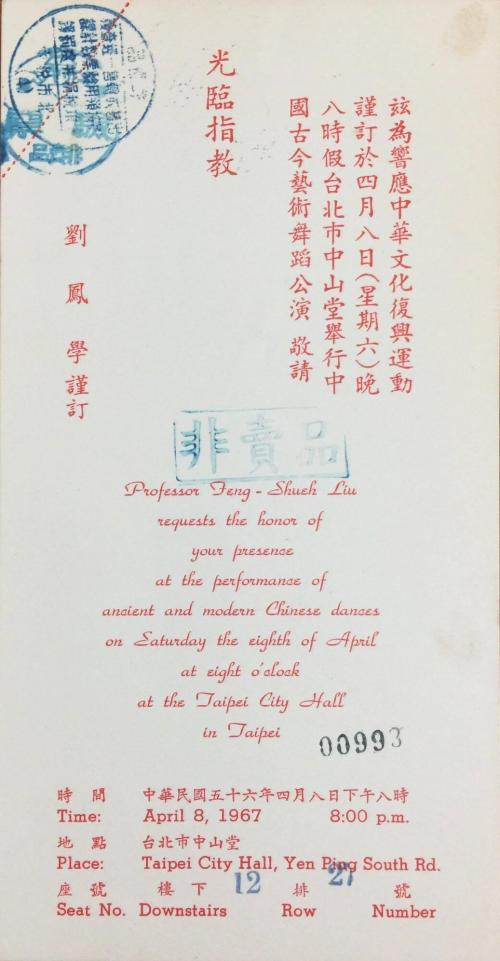 茲為響應中華文化復興運動
謹訂於四月八日(星期六)晚
八時假台北市中山堂舉行中
國古今藝術舞蹈公演 敬請
光臨指教
劉鳳學謹訂
非賣品
Professor Feng-Shueh Liu
requests the honor of
your presence
at the performance of
ancient and modern Chinese dances
on Saturday the eighth of April
at eight o'clock
at the Taipei City Hall
in Taipei
00993
時間 中華民國五十六年四月八日下午八時
Time: April 8, 1967 8:00 p.m.
地點 台北市中山堂
Place: Taipei City Hall, Yen Ping South Rd.
座號 樓下 12 排 27 號
Seat No. Downstairs Row Number